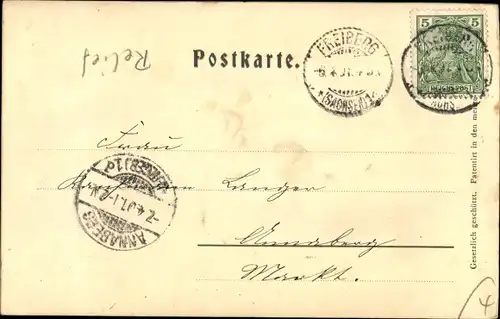 Relief
Postkarte.
FREIBERG
(SACHSEN) 1
5 5
Frau
Langer
Annaberg
Markt.
ANNABERG
-7.4.01.
Gesetzlich geschützt. Patentirt in den
4